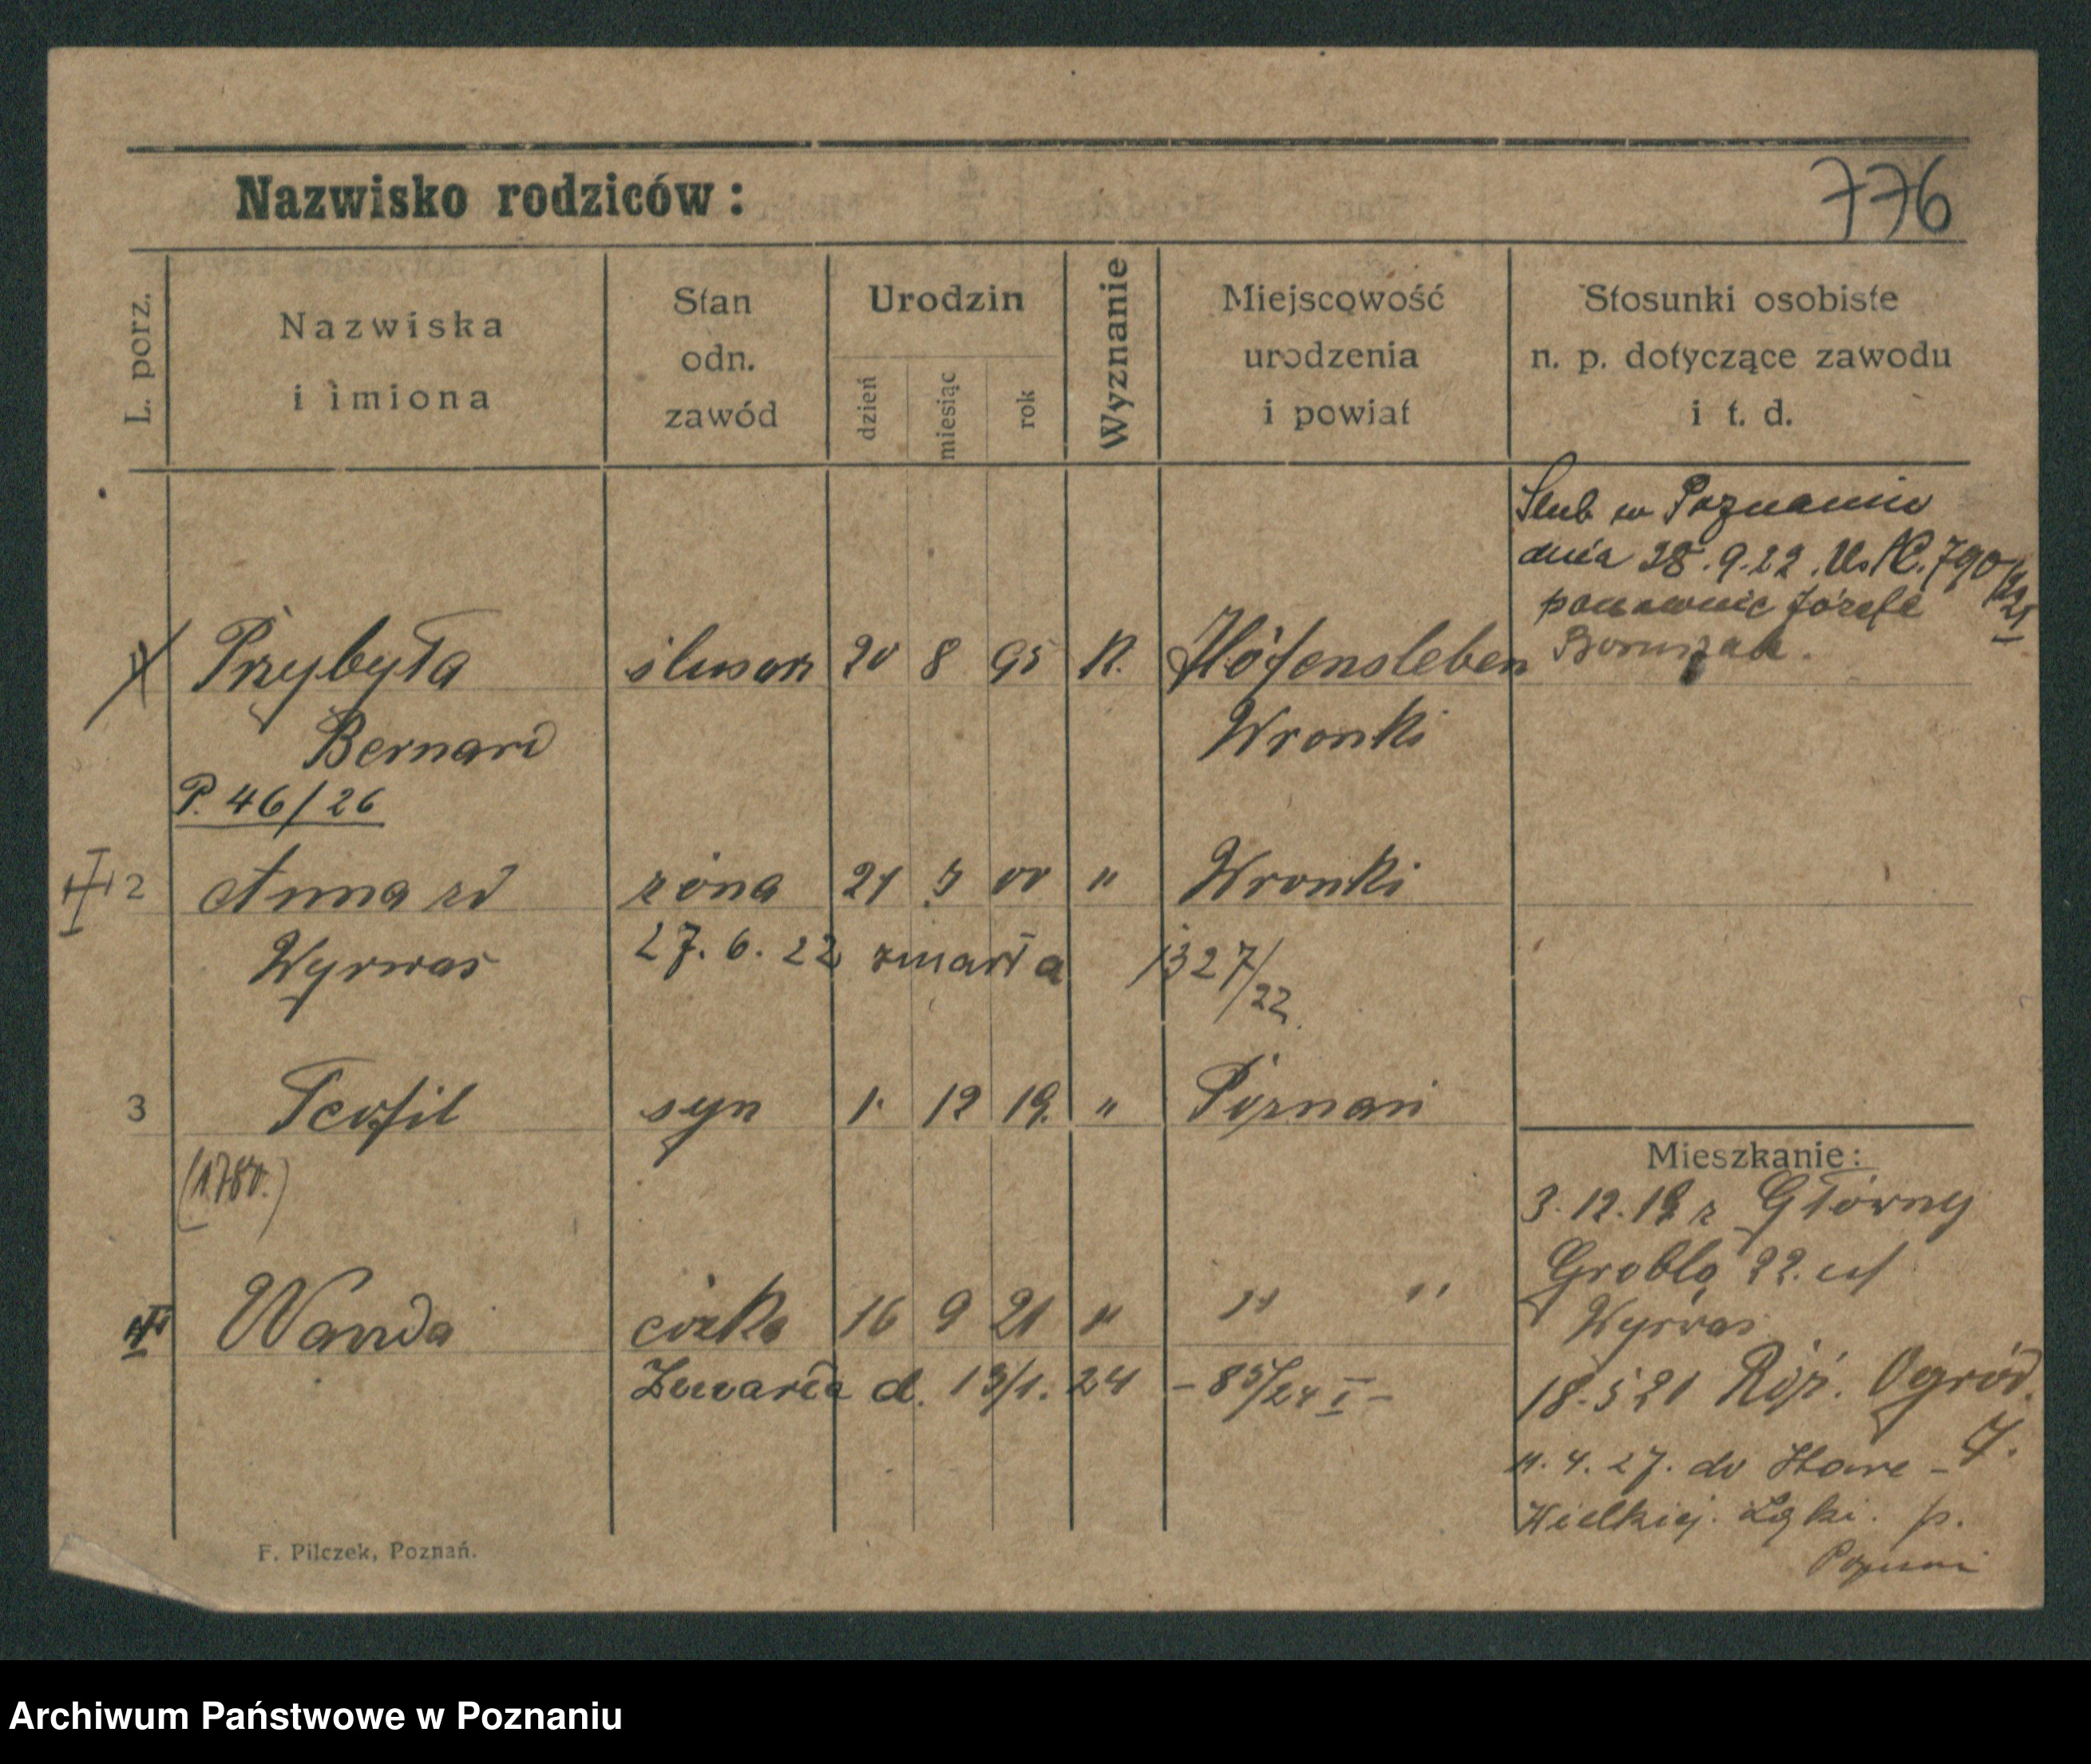 Nazwisko rodziców:
776
L. porz.
Nazwiska
i imiona
Stan
odn.
zawód
Urodzin
dzień
miesiąc
rok
Wyznanie
Miejscowość
urodzenia
i powiat
Stosunki osobiste
n. p. dotyczące zawodu
i t. d.
Ślub w Poznaniu
dnia 28.9.22. 790
ponownie Józefa
Przybyła ślusarz 20 8 95 K. Hötensleben
Bernard Wronki
P. 46/26
2 Anna zd żona 21 5 00 " Wronki
Wyrwas 27. 6. 22 zmarła 1327/22.
3 Teofil syn 1. 12 19. " Poznań
Mieszkanie:
3.12.19 z Główny
Grobla 22. u/
Wyrwas
Wanda córka 16 9 21 " " "
Zmarła d. 13/1. 24 - 85/24 I -
18.5 21 Ogród.
7.
11. 4. 27. do Stare -
Wielkiej. Łąki. p.
Poznań
F. Pilczek, Poznań.
Archiwum Państwowe w Poznaniu